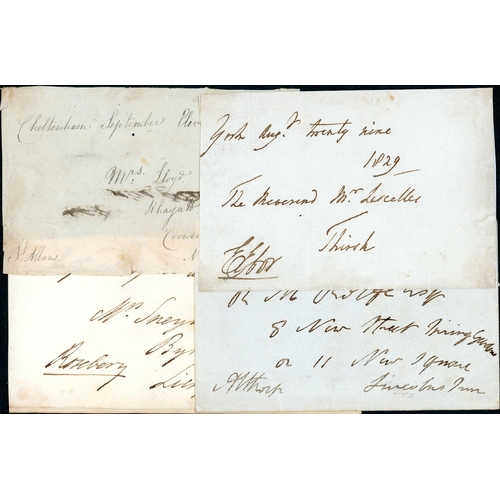 Cheltenham September Elev
Mrs. Lloyd
Rhagatt
Corwen
St. Albans
York Augt. twenty nine
1829
The Reverend Mr Lascelles
Thirsk
EEbor
Mrs Sneyd
By
Roxbery
8 New Street Spring Gardens
or 11 New Square
Althorp
Lincolns Inn